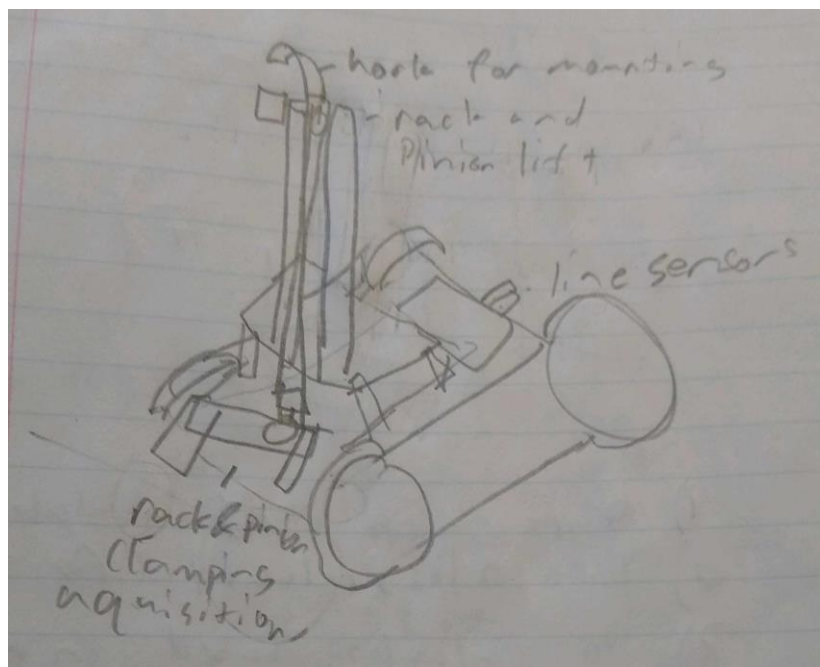 hook for mounting
rack and
Pinion lift
line sensors
rack & pinion
Clamping
aquisition